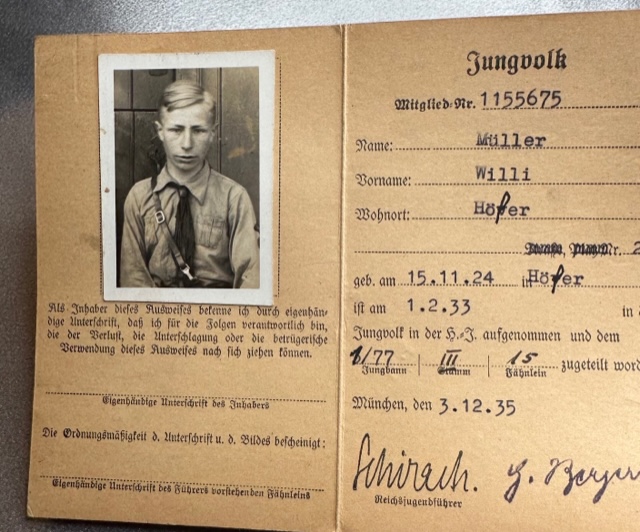 Als Inhaber dieses Ausweises bekenne ich durch eigenhän-
dige Unterschrift, daß ich für die Folgen verantwortlich bin,
die der Verlust, die Unterschlagung oder die betrügerische
Verwendung dieses Ausweises nach sich ziehen können.
Eigenhändige Unterschrift des Inhabers
Die Ordnungsmäßigkeit d. Unterschrift u. d. Bildes bescheinigt:
Eigenhändige Unterschrift des Führers vorstehenden Fähnleins
Jungvolk
Mitglied-Nr. 1155675
Name: Müller
Vorname: Willi
Wohnort: Höfer
Nr. 2
geb. am 15.11.24 in Höfer
ist am 1.2.33 in
Jungvolk in der H.-J. aufgenommen und dem
/77 III 15 zugeteilt word
Jungbann Stamm Fähnlein
München, den 3.12.35
Schirach.
Reichsjugendführer